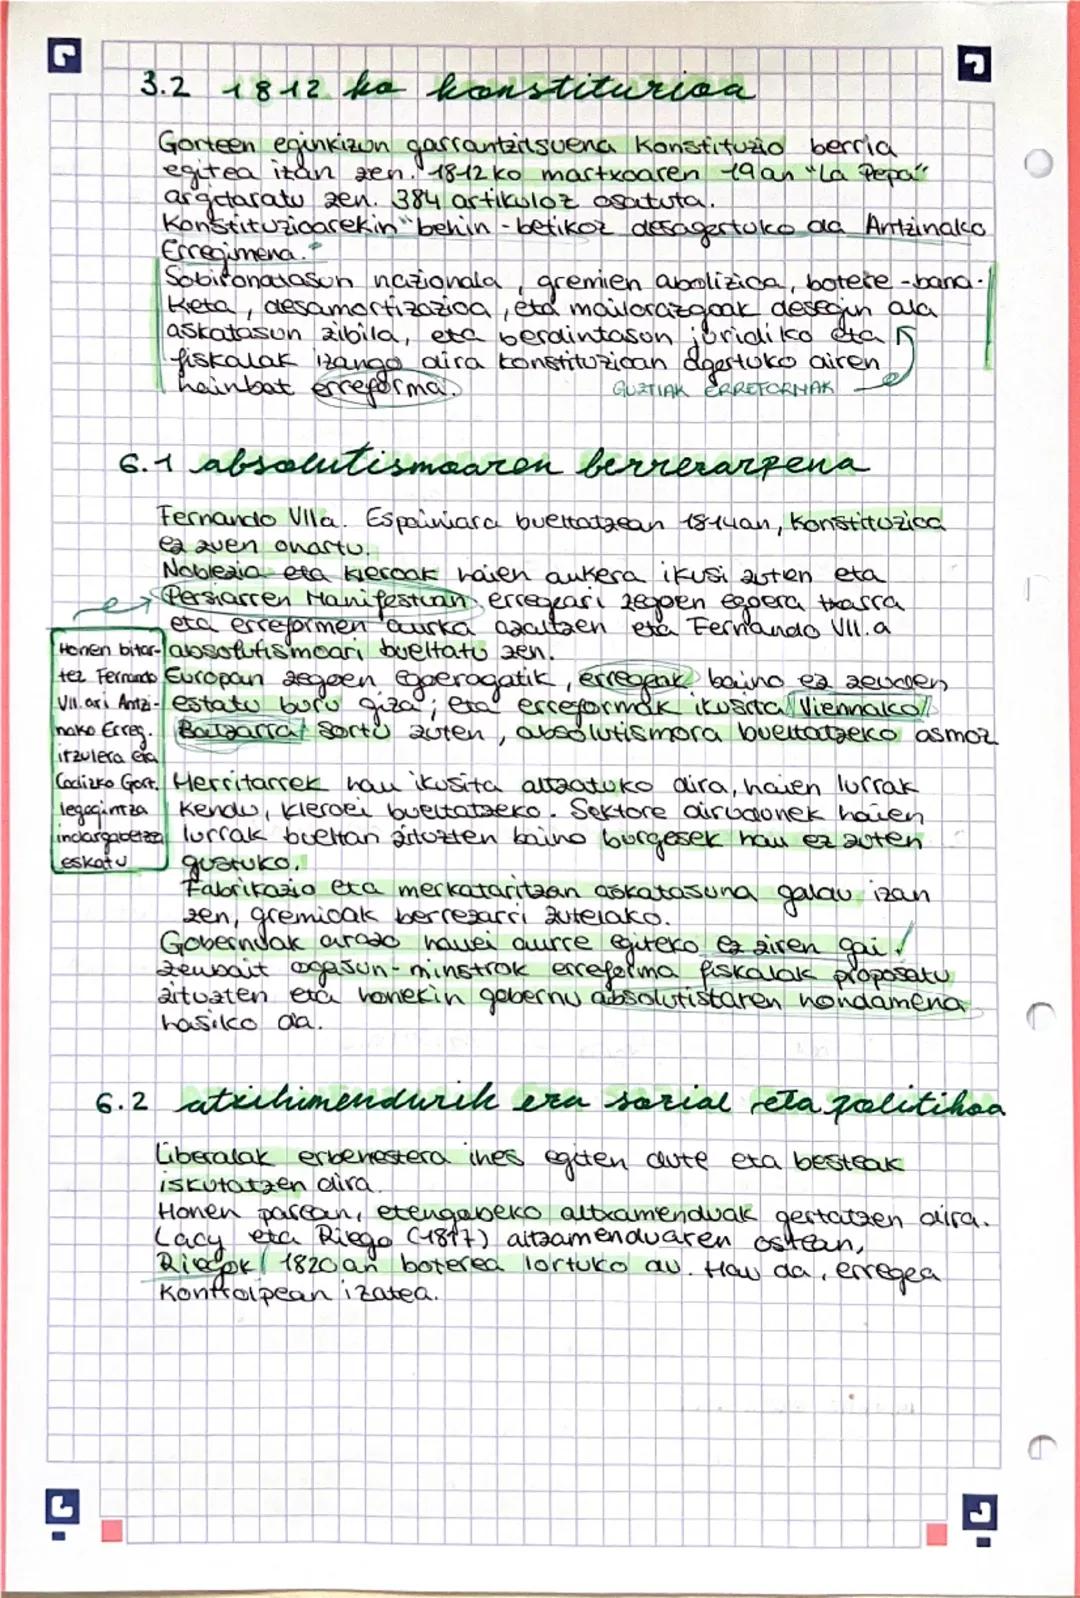 3.2 1812 ko konstituzioa
Gorteen eginkizun garrantzitsuena Konstituzio berria
egitea izan zen. 1812ko martxoaren 19an "La Pepa"
argitaratu zen. 384 artikuloz osatuta.
Konstituzioarekin "behin-betikoz desagertuko da Antzinako
Erregimena."
Sobiranotasun nazionala, gremien abolizioa, botere-bana-
keta, desamortizazioa, eta maiorazgoak desegin ala
askatasun zibila, eta berdintasun juridiko eta
fiskalak izango dira konstituzioan agertuko diren
hainbat erreforma.
GUZTIAK ERREFORMAK
6.1 absolutismoaren berrezarpena
Fernando VIIa. Espainiara bueltatzean 1814an, Konstituzioa
ez zuen onartu.
Noblezia eta kleroak haien aukera ikusi zuten eta
Persiarren Manifestuan erregeari zegoen egoera txarra
eta erreformen aurka azaltzen eta Fernando VII.a
absolutismoari bueltatu zen.
Europan zegoen egoeragatik, erregeak baino ez zeuden
estatu buru giza, eta erreformak ikusita Viennako
Batzarra sortu zuten, absolutismora bueltatzeko asmoz
Herritarrek hau ikusita altzatuko dira, haien lurrak
kendu, kleroei bueltatzeko. Sektore dirudunek haien
lurrak bueltan zituzten baino burgesek hau ez zuten
gustuko.
Fabrikazio eta merkataritzan askatasuna galdu izan
zen, gremioak berrezarri zutelako.
Gobernuak arazo hauei aurre egiteko ez ziren gai.
zenbait ogasun-minstrok erreforma fiskalak proposatu
zituzten eta honekin gobernu absolutistaren hondamena
hasiko da.
Honen bitar-
tez Fernando
VII.ari Antzi-
nako Erreg.
itzulera eta
Cadizko Gort.
legegintza
indargabetzea
eskatu
6.2 atxikimendurik eza sozial eta politikoa
Liberalak erbestera ihes egiten dute eta besteak
iskutatzen dira.
Honen parean, etengabeko altxamenduak gertatzen dira.
Lacy eta Riego (1817) altzamenduaren ostean,
Riegok 1820an boterea lortuko du. Hau da, erregea
Kontrolpean izatea.